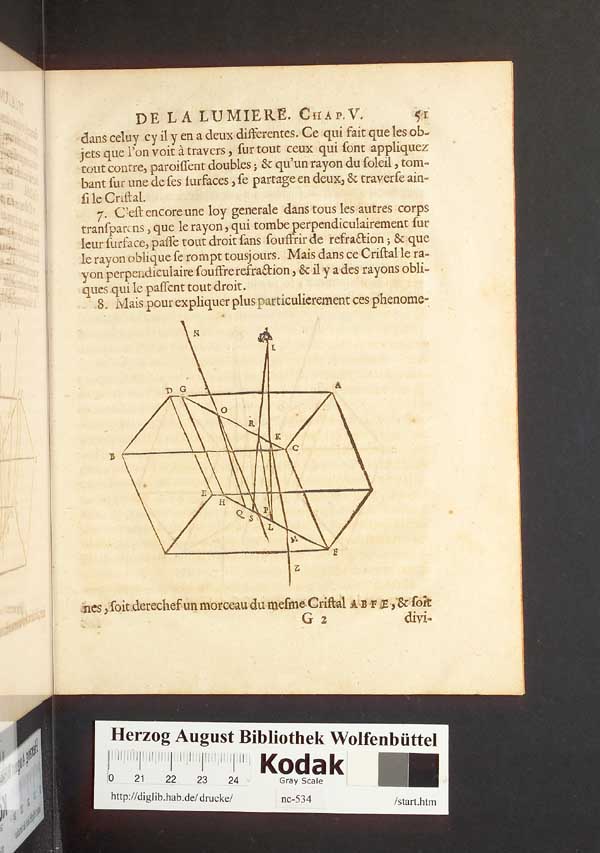 DE LA LUMIERE. CHAP. V. 51
dans celuy cy il y en a deux differentes. Ce qui fait que les ob-
jets que l'on voit à travers, sur tout ceux qui sont appliquez
tout contre, paroissent doubles; & qu'un rayon du soleil, tom-
bant sur une de ses surfaces, se partage en deux, & traverse ain-
si le Cristal.
7. C'est encore une loy generale dans tous les autres corps
transparens, que le rayon, qui tombe perpendiculairement sur
leur surface, passe tout droit sans souffrir de refraction; & que
le rayon oblique se rompt tousjours. Mais dans ce Cristal le ra-
yon perpendiculaire souffre refraction, & il y a des rayons obli-
ques qui le passent tout droit.
8. Mais pour expliquer plus particulierement ces phenome-
N
I
D G A
O
R
K
B C
E H
Q S P
L
M
F
Z
nes, soit derechef un morceau du mesme Cristal A B F E, & soit
G 2 divi-
Herzog August Bibliothek Wolfenbüttel
0 21 22 23 24
Kodak
Gray Scale
http://diglib.hab.de/drucke/ nc-534 /start.htm